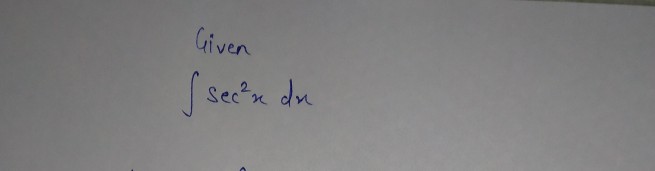 Given
∫ sec²x dx